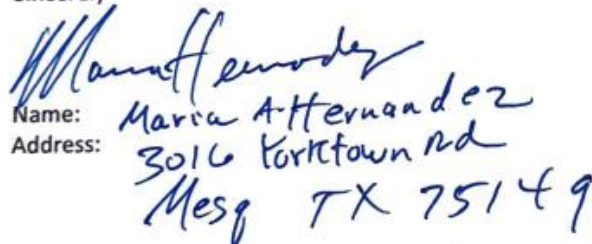 Maria Hernandez
Name: Maria A Hernandez
Address: 3016 Yorktown Rd
Mesq TX 75149